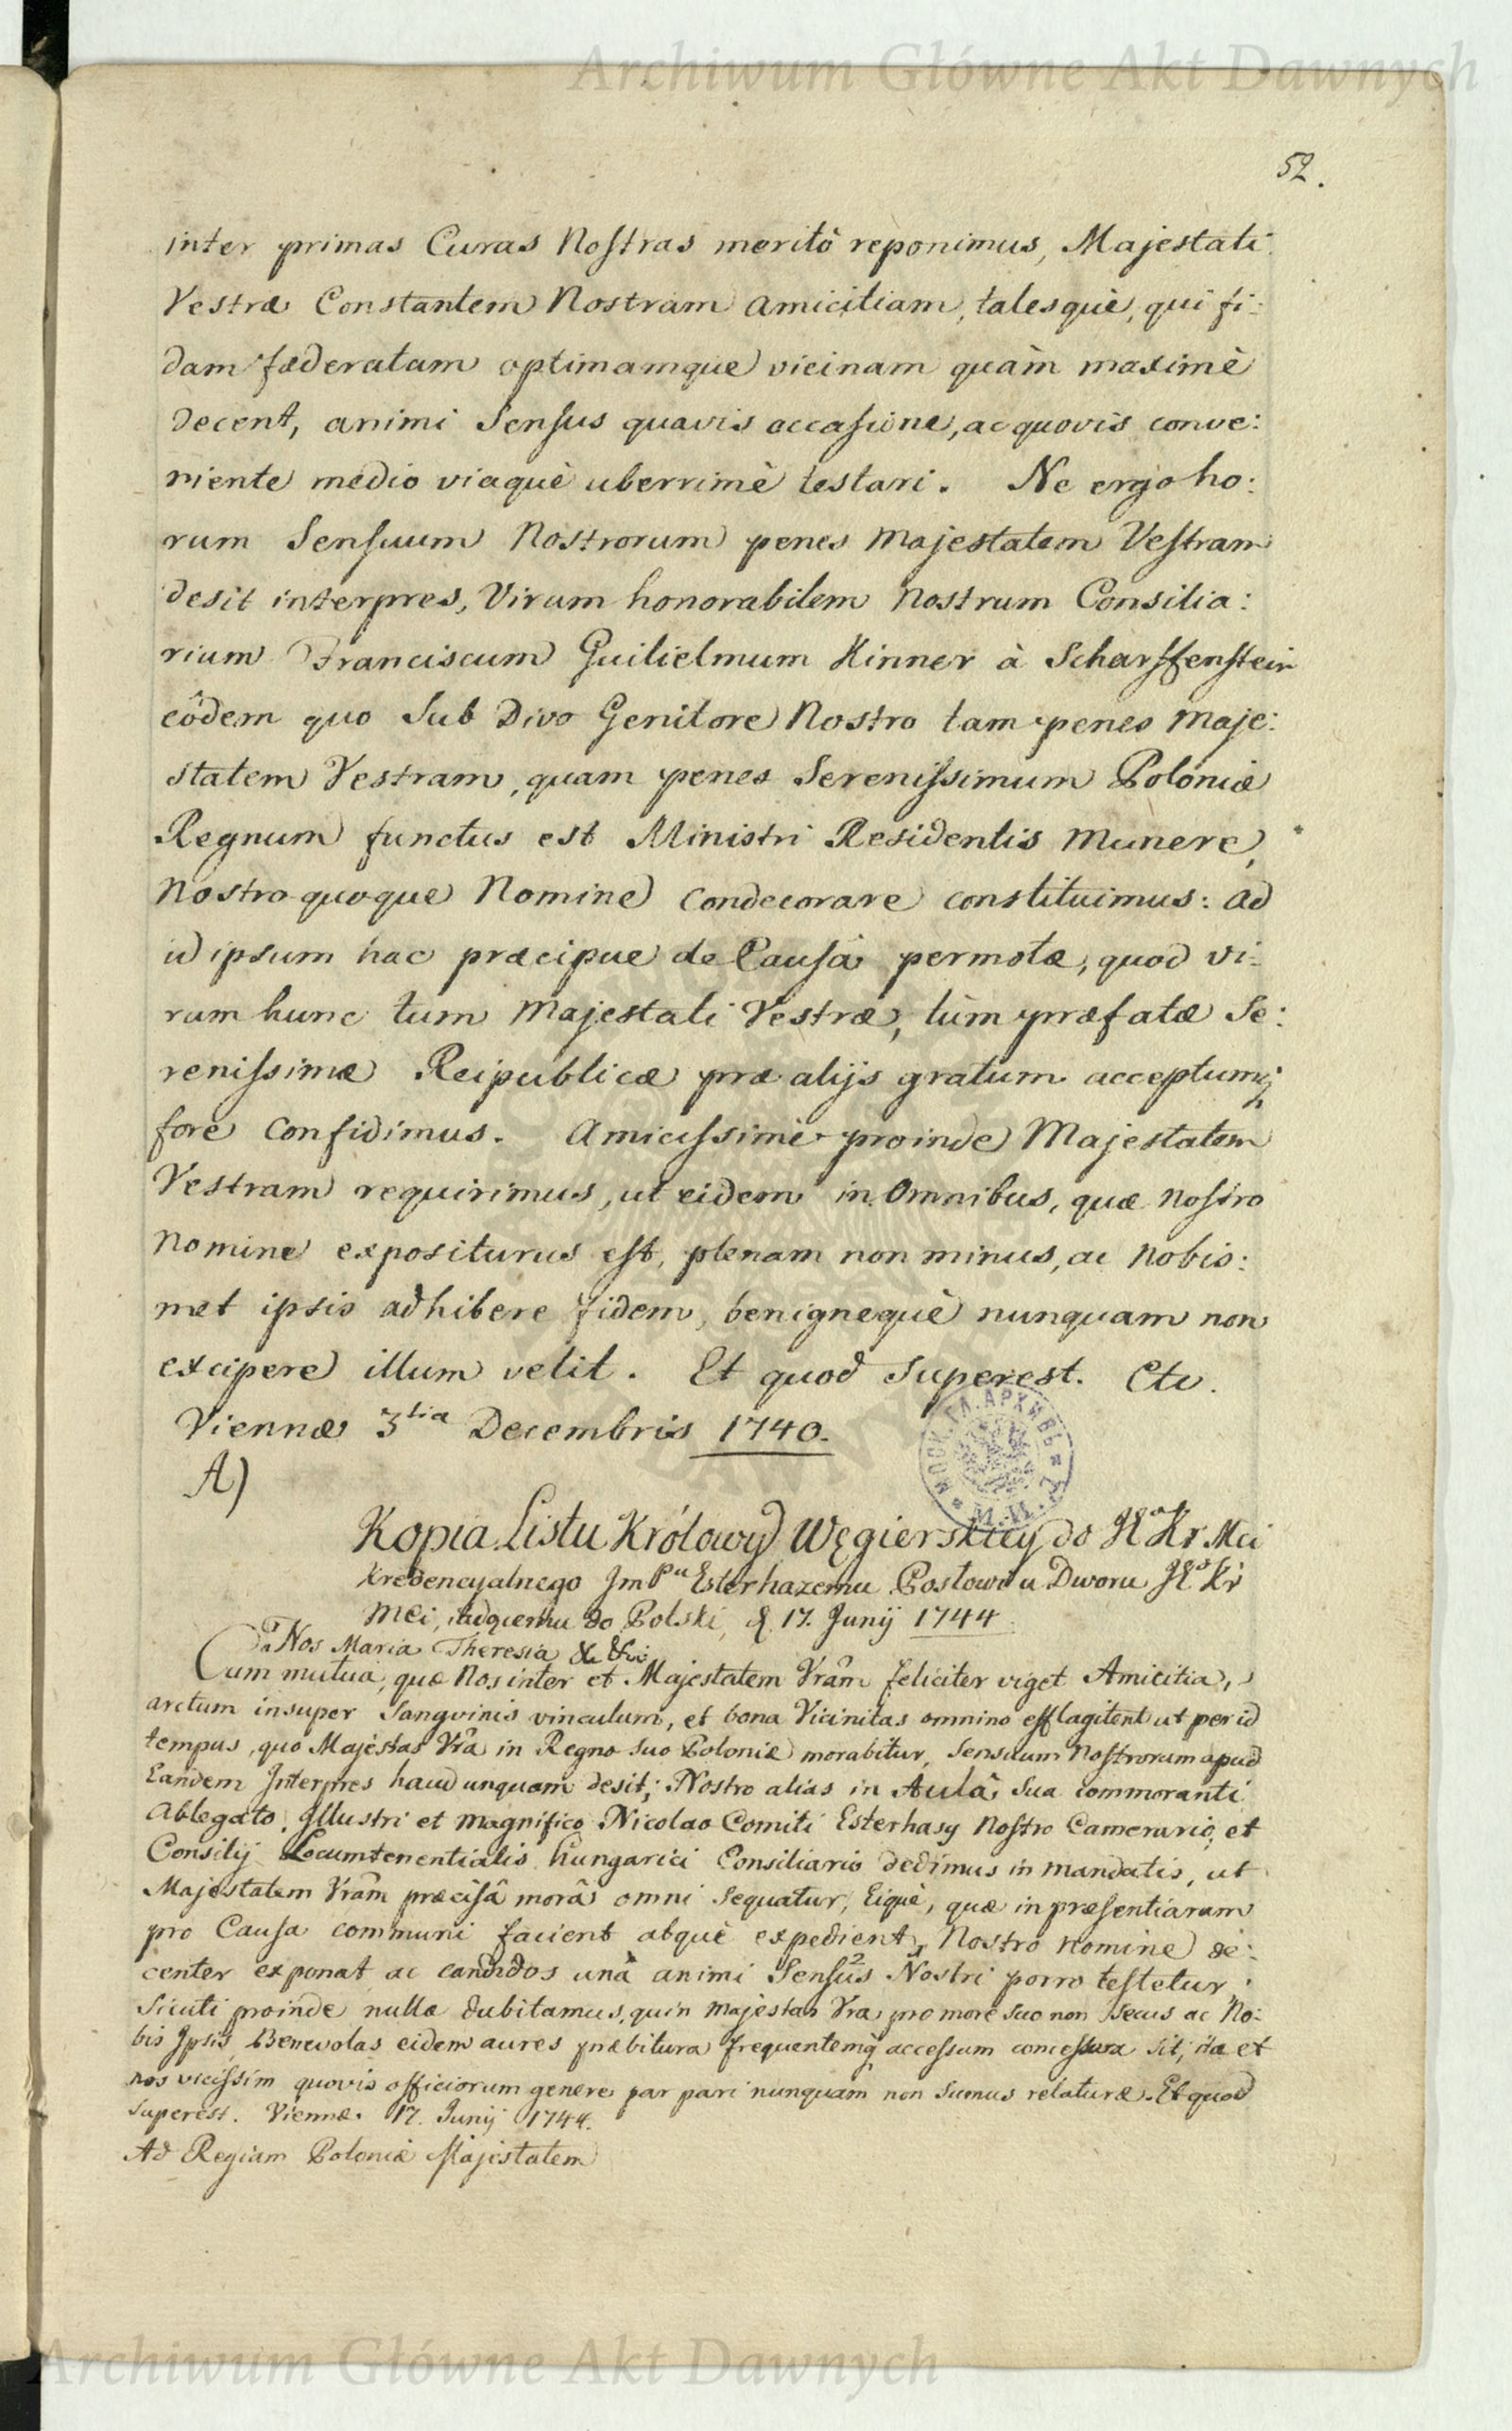 Archiwum Główne Akt Dawnych
52.
inter primas Curas Nostras meritò reponimus, Majestati
Vestræ Constantem Nostram amicitiam, talesquè, qui fi:
dam fæderatam optimamque vicinam quàm maximè
decent, animi Sensus quavis occasione, ac quovis conve:
niente medio viaquè uberrimè testari. Ne ergo ho:
rum Sensuum Nostrorum penes Majestatem Vestram
desit interpres, Virum honorabilem Nostrum Consilia:
rium Franciscum Guilielmum Kinner à Scharffenstein
eôdem quo Sub Divo Genitore Nostro tam penes Maje:
statem Vestram, quam penes Serenissimum Poloniæ
Regnum functus est Ministri Residentis Munere,
Nostro quoque Nomine condecorare constituimus: ad
id ipsum hac præcipue de Causâ permotæ, quod vi:
rum hunc tum Majestati Vestræ, tùm præfatæ Se:
renissimæ Reipublicæ præ alijs gratum acceptumq
fore confidimus. Amicissimè proinde Majestatem
Vestram requirimus, ut eidem in Omnibus, quæ nostro
nomine expositurus est, plenam non minus, ac nobis:
met ipsis adhibere fidem, benignequè nunquam non
excipere illum velit. Et quod Superest. Etc.
Viennæ 3tia Decembris 1740.
A)
Kopia Listu Królowy Węgierskiey do JKr Mci
Kredencyalnego Jm Pu Esterhazemu Posłowi u Dworu JKr
Mci, iadącemu do Polski, d. 17. Junij 1744
Nos Maria Theresia &c &c
Cum mutua, quæ Nos inter et Majestatem Vrâm feliciter viget Amicitia,
arctum insuper Sangvinis vinculum, et bona Vicinitas omnino efflagitent ut per id
tempus, quo Majestas Vrâ in Regno Suo Poloniæ morabitur, Sensuum Nostrorum apud
Eandem Interpres haud unquam desit; Nostro alias in Aulâ Sua commoranti
Ablegato, Illustri et Magnifico Nicolao Comiti Esterhasy Nostro Camerario, et
Consilij Locumtenentialis Hungarici Consiliario dedimus in mandatis, ut
Majestatem Vrâm præcisâ morâ omni Sequatur, Eiquè, quæ in præsentiarum
pro Causa communi facient atquè expedient, Nostro nomine de:
center exponat ac candidos unà animi Sensus Nostri porro testetur.
Sicuti proinde nullæ dubitamus, quin Majestas Vra pro more Suo non secus ac No:
bis Ipsis Benevolas eidem aures præbitura frequentemq accessum concessura sit, ita et
nos vicissim quovis officiorum genere par pari nunquam non Sumus relaturæ. Et quod
Superest. Viennæ. 17. Junij 1744.
Ad Regiam Poloniæ Majestatem
Archiwum Główne Akt Dawnych